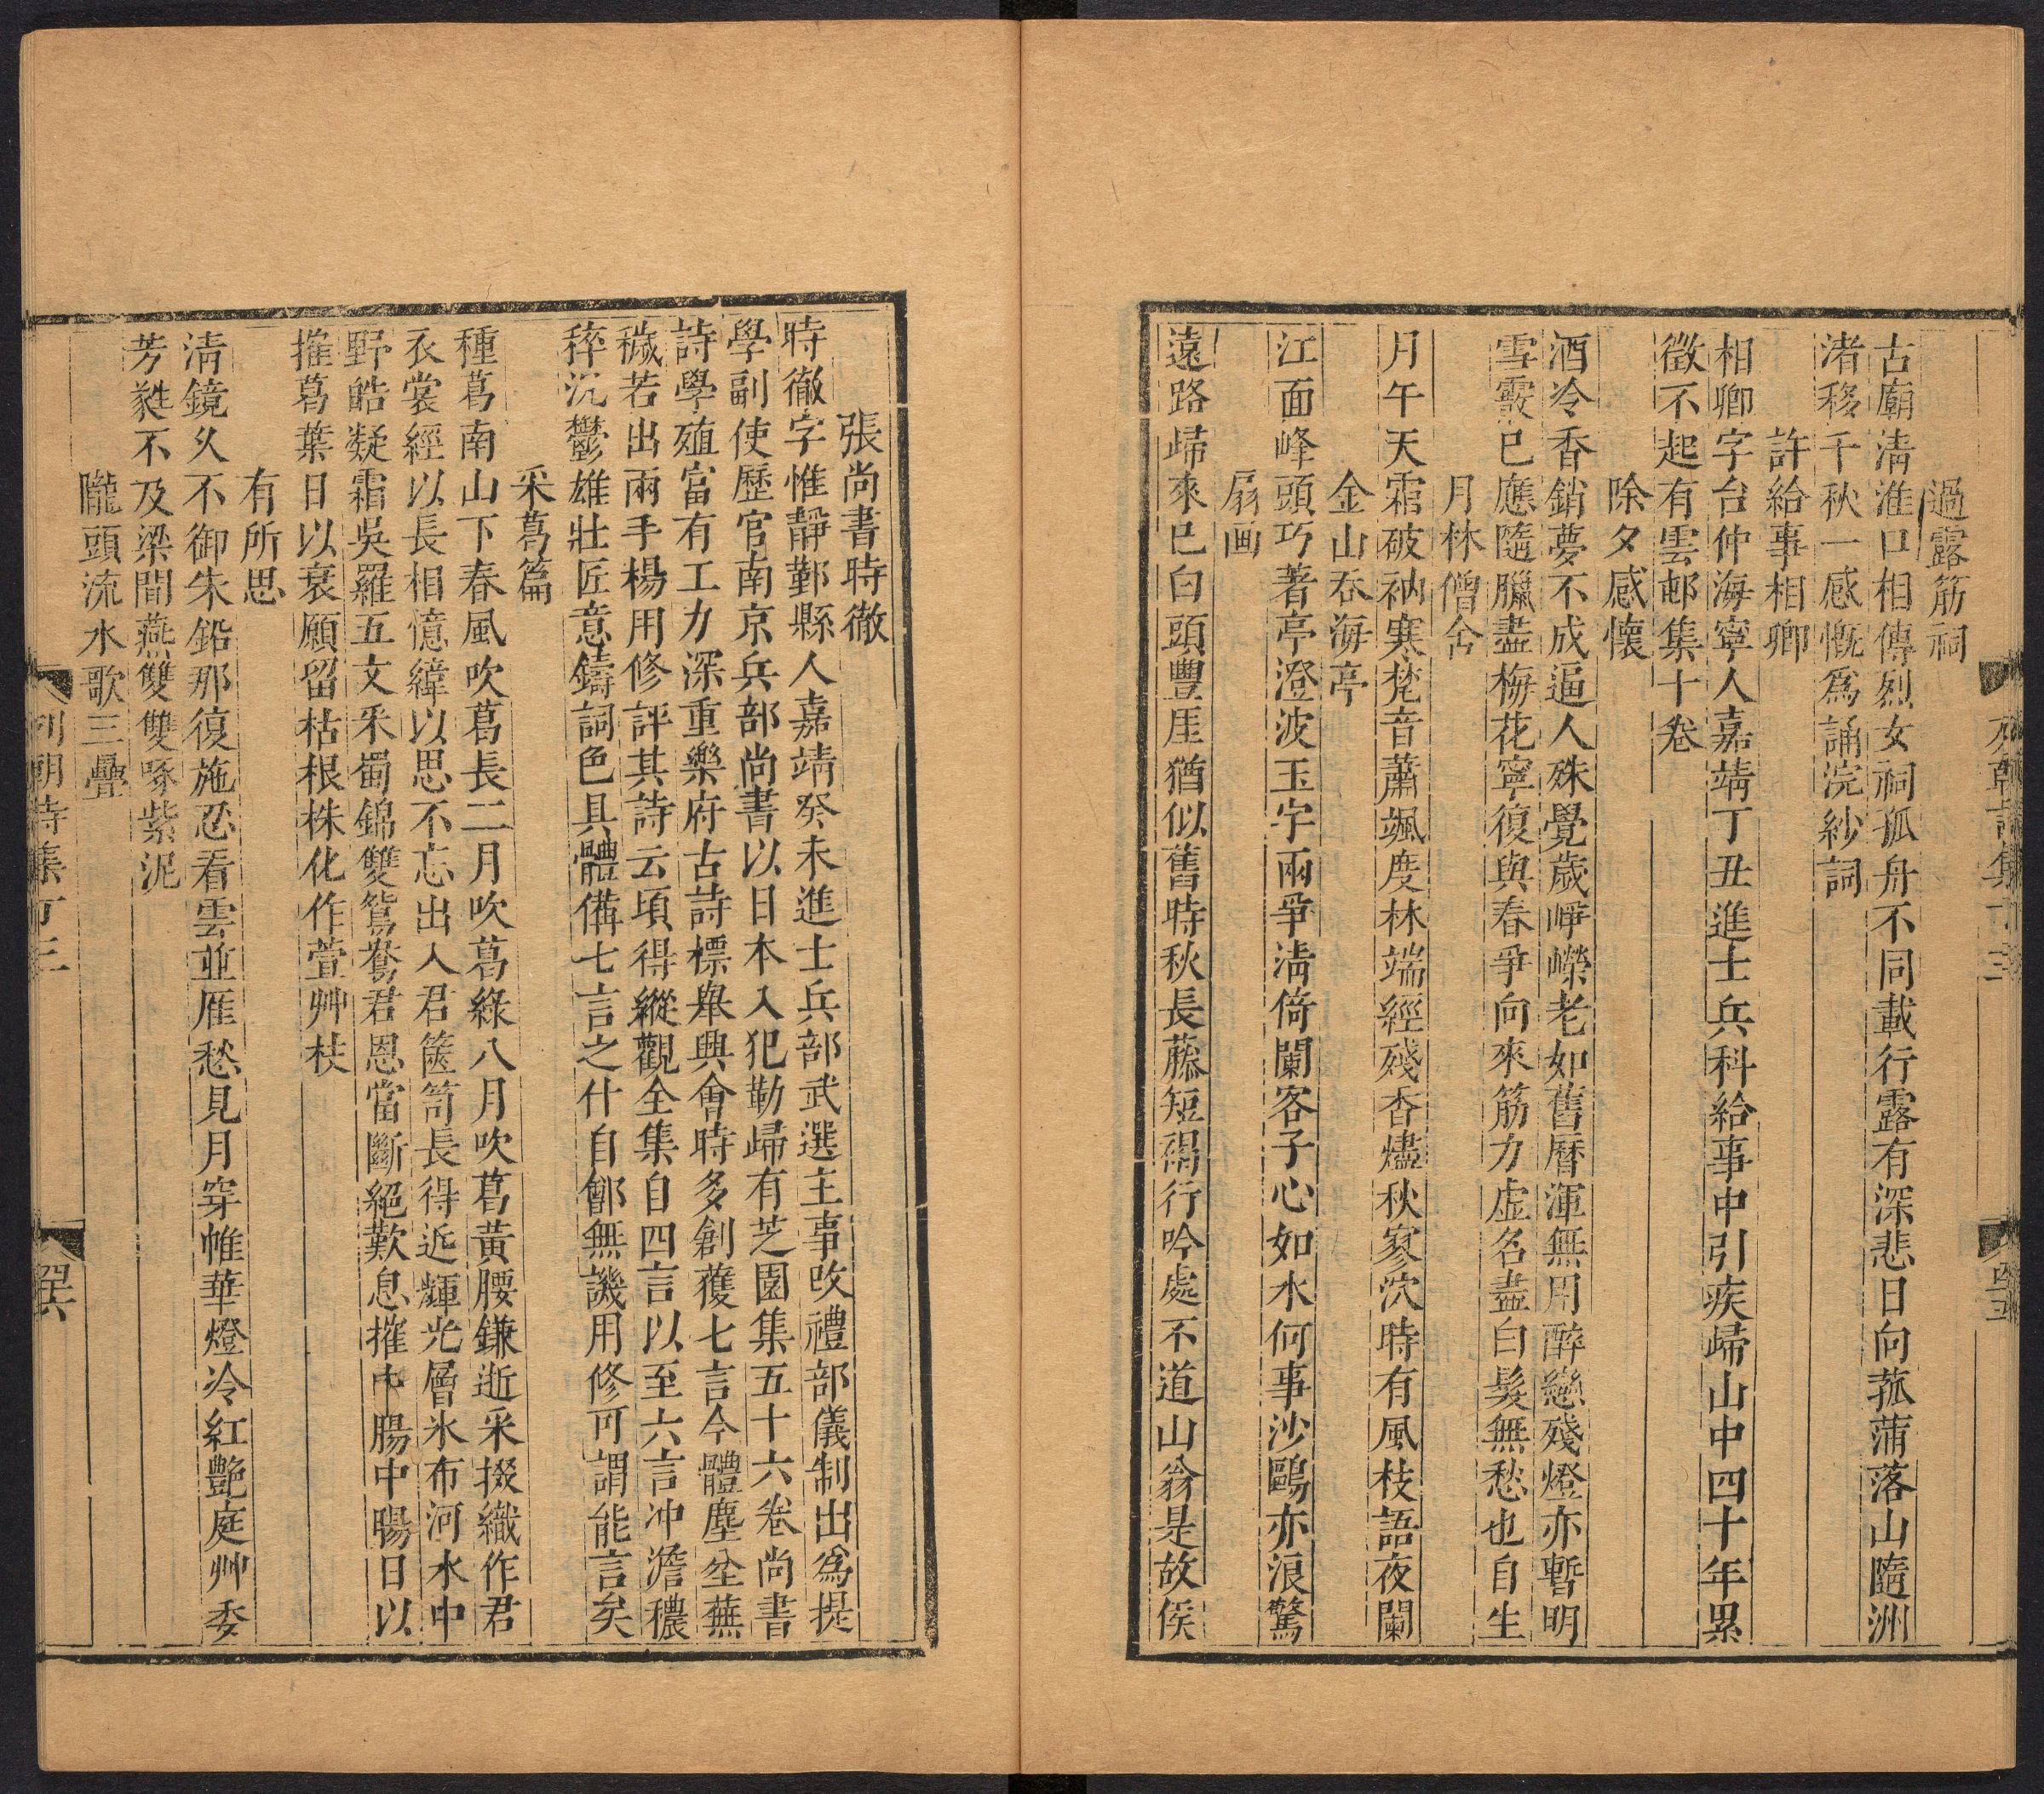 過露筋祠
古廟清淮口相傳烈女祠孤舟不同載行露有深悲日向菰蒲落山隨洲
渚移千秋一感慨為誦浣紗詞
許給事相卿
相卿字台仲海寧人嘉靖丁丑進士兵科給事中引疾歸山中四十年累
徵不起有雲邨集十卷
除夕感懷
酒冷香銷夢不成逼人殊覺歲崢嶸老如舊曆渾無用醉戀殘燈亦暫明
雪霰已應隨臘盡梅花寧復與春爭向來筋力虛名盡白髮無愁也自生
月林僧舍
月午天霜破衲寒梵音蕭颯度林端經殘香燼秋寥泬時有風枝語夜闌
金山吞海亭
江面峰頭巧著亭澄波玉宇兩爭清倚闌客子心如水何事沙鷗亦浪驚
扇画
遠路歸來已白頭豐厓猶似舊時秋長藤短褐行吟處不道山翁是故侯
張尚書時徹
時徹字惟靜鄞縣人嘉靖癸未進士兵部武選主事改禮部儀制出為提
學副使歷官南京兵部尚書以日本入犯勒歸有芝園集五十六卷尚書
詩學殖富有工力深重樂府古詩標舉興會時多創獲七言今體塵坌蕪
穢若出兩手楊用修評其詩云頃得縱觀全集自四言以至六言冲澹穠
稡沉鬱雄壯匠意鑄詞色具體備七言之什自鄶無譏用修可謂能言矣
采葛篇
種葛南山下春風吹葛長二月吹葛綠八月吹葛黃腰鎌逝采掇織作君
衣裳經以長相憶緯以思不忘出入君篋笥長得近輝光層氷布河水中
野皓凝霜吳羅五文釆蜀錦雙鴛鴦君恩當斷絕歎息摧中腸中腸日以
摧葛葉日以衰願留枯根株化作萱艸枝
有所思
清鏡久不御朱鉛那復施忍看雲並雁愁見月穿帷華燈冷紅艷庭艸委
芳蕤不及梁間燕雙雙啄紫泥
隴頭流水歌三疊
列朝詩集丁三